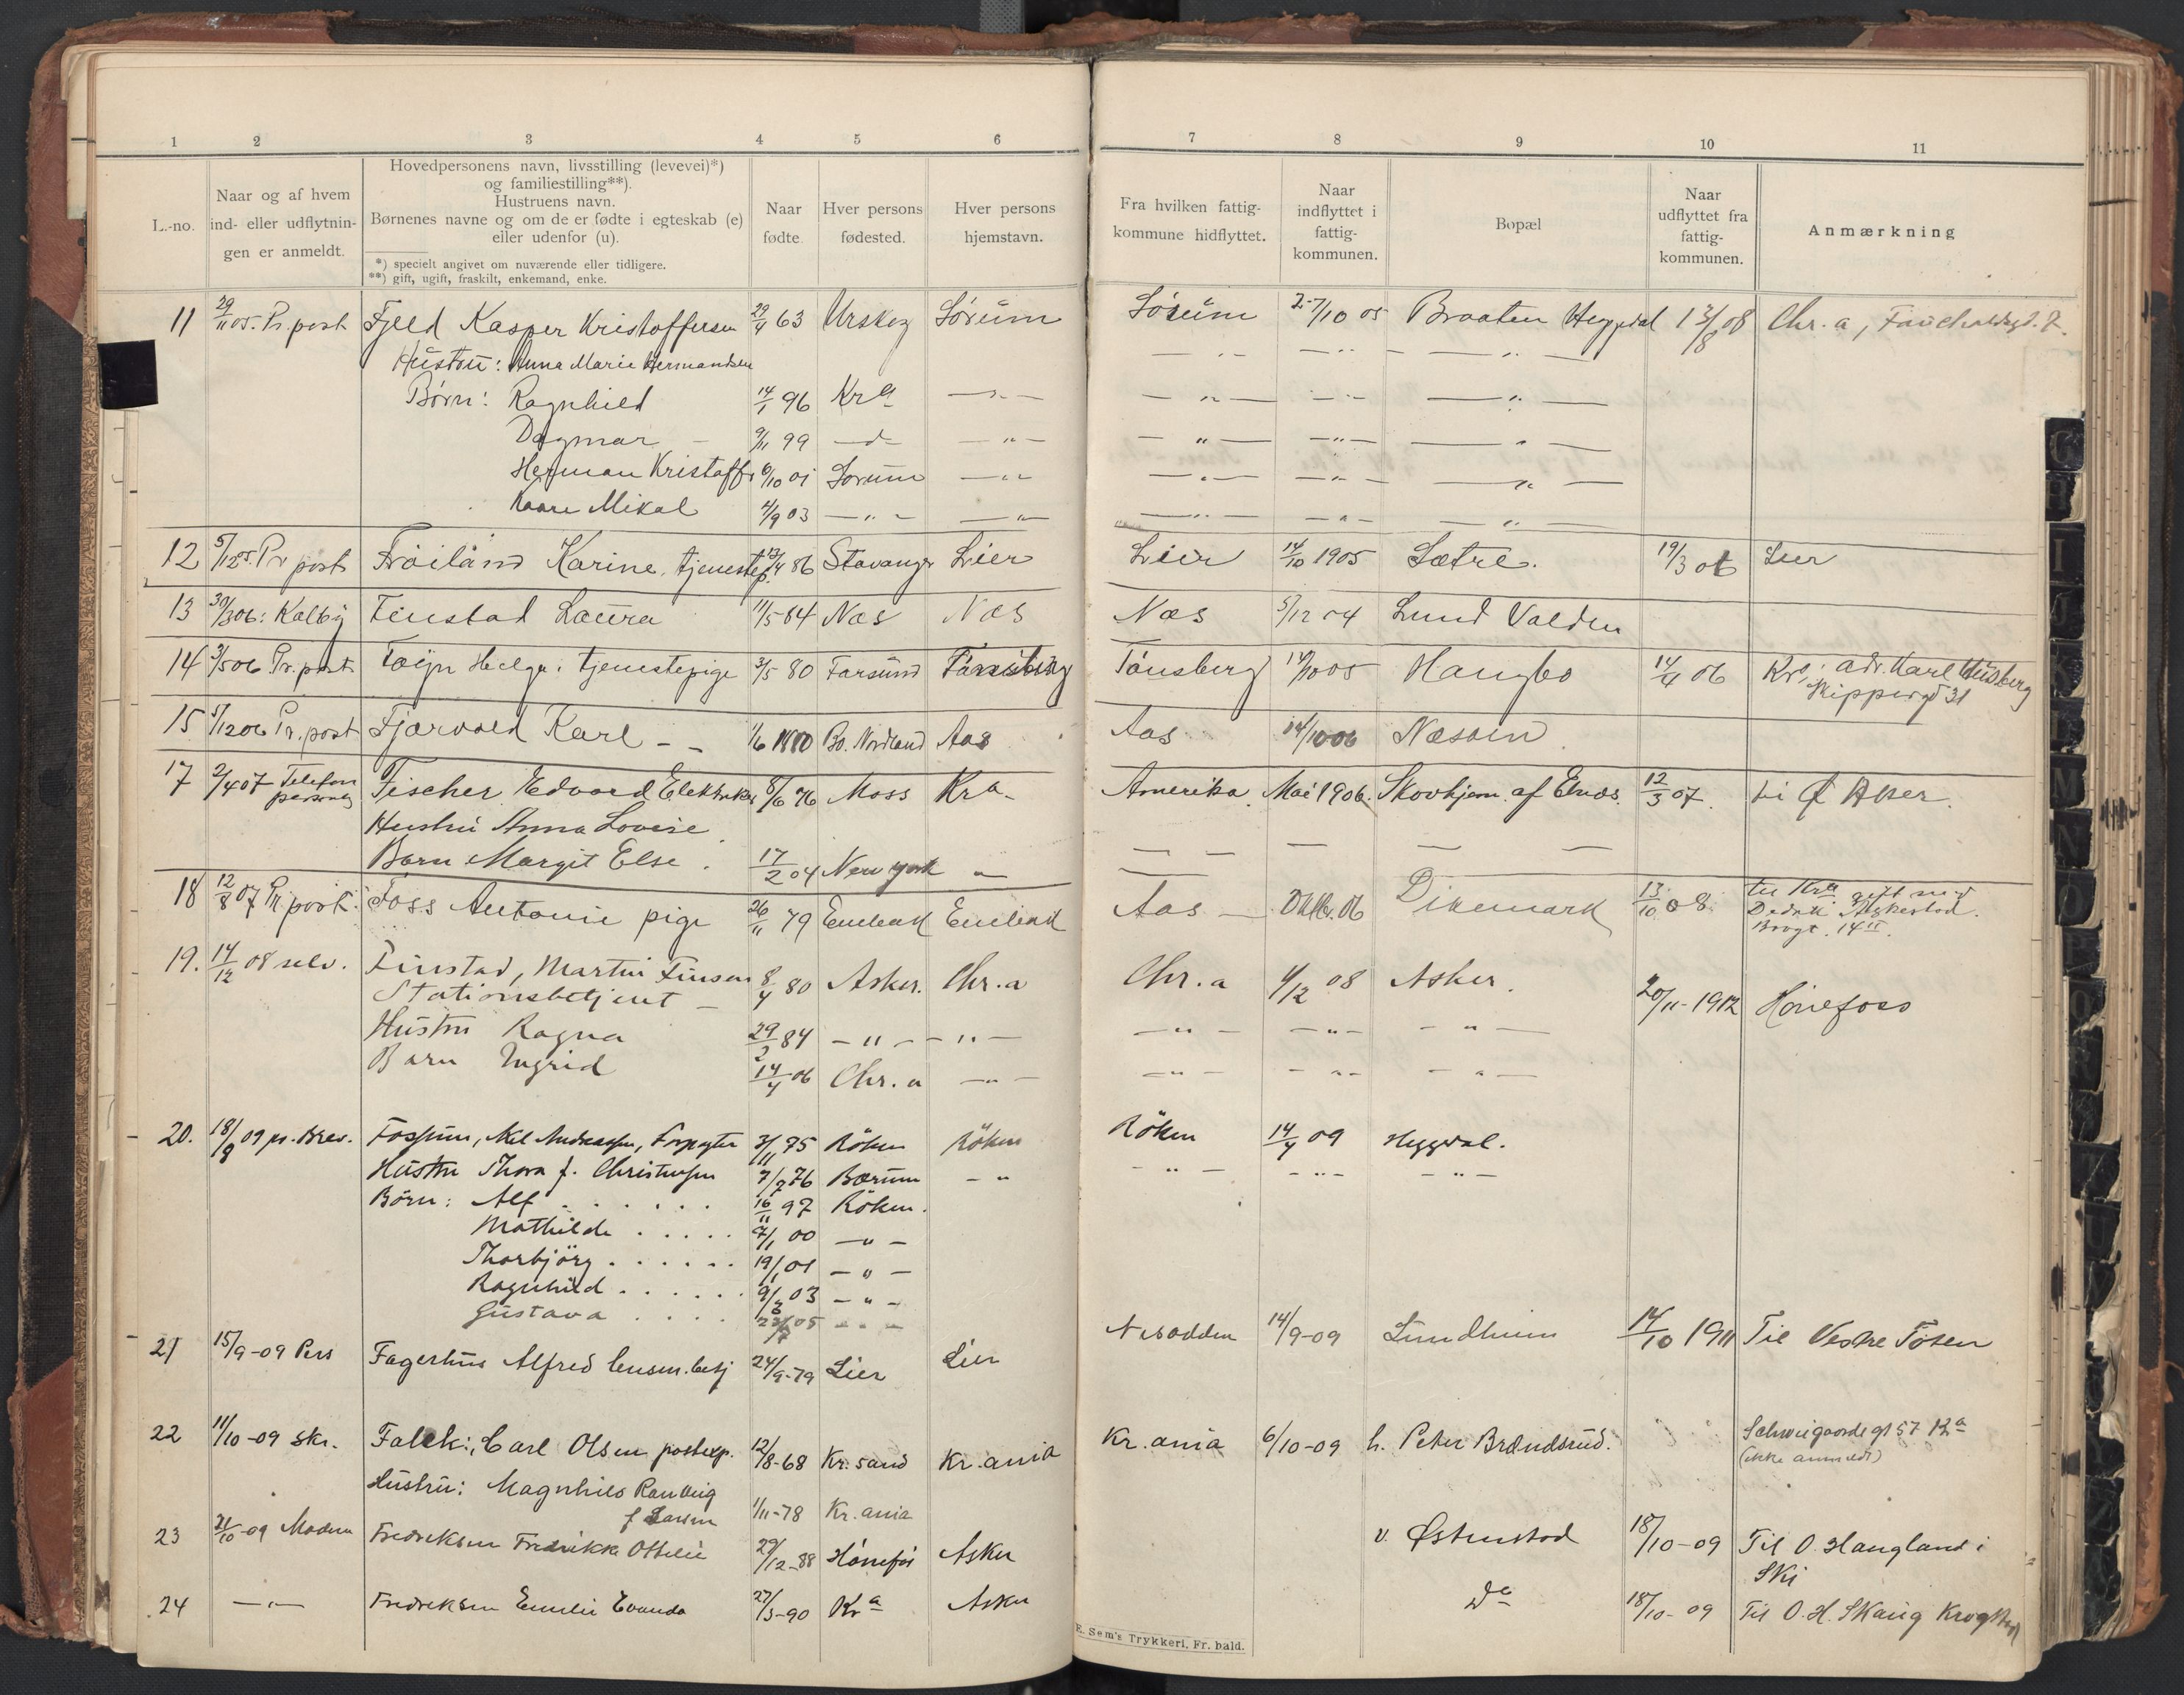 1 2 3 4 5 6 7 8 9 10 11
L.-no.
Naar og af hvem
ind- eller udflytnin-
gen er anmeldt.
Hovedpersonens navn, livsstilling (levevei)*)
og familiestilling**).
Hustruens navn.
Børnenes navne og om de er fødte i egteskab (e)
eller udenfor (u).
*) specielt angivet om nuværende eller tidligere.
**) gift, ugift, fraskilt, enkemand, enke.
Naar
fødte.
Hver persons
fødested.
Hver persons
hjemstavn.
Fra hvilken fattig-
kommune hidflyttet.
Naar
indflyttet i
fattig-
kommunen.
Bopæl
Naar
udflyttet fra
fattig-
kommunen.
Anmærkning
11 29/11 05. Pr. post Fjeld Kasper Kristoffersen 29/4 63 Urskog Sørum Sørum 27/10 05 Braaten Heggedal 13/8 08 Chr. a,
Hustru: Anna Marie Hermandsen — " — — " — — " —
Børn: Ragnhild 14/1 96 Kra — " — — " — — " — — " —
Dagmar 9/11 99 — d — — " — — " — — " — — " —
Herman Kristoff 6/10 01 Sørum — " — — " — — " — — " —
Kaare Mikal 4/9 03 — " — — " — — " — — " — — " —
12 5/12 05. Pr post Frøiland Karine, tjenestep. 13/4 86 Stavanger Lier Lier 14/10 1905 Sætre. 19/3 06 Lier
13 30/3 06: Kalby Finstad Laura 11/5 84 Næs Næs Næs 5/12 04 Lund Valden
14 3/5 06 Pr. post Føijn Helga: tjenestepige 3/5 80 Farsund Tønsberg Tønsberg 14/10 05 Haugbo 14/4 06 Kra, adr. Karl Husberg
Skippergd 31
15 5/12 06 Pr. post Fjærvold Karl — 1/6 1880 Bo. Nordland Aas Aas 14/10 06 Næssen
17 2/4 07 Telefon personlig Fischer Edvard Elektriker 8/6 76 Moss Kra. Amerika. Mai 1906. Skovhjem af Elnæs. 12/3 07. til Ø Aker.
Hustru Anna Lovise — — — — —
Barn Margit Else 17/2 04 New york "
18 12/8 07 Pr post. Foss Antonie pige 26/11 79 Enebak Enebak Aas — Oktbr. 06 Dikemark 13/10 08. til Kra gift med
Askestad.
19. 14/12 08 selv. Finstad, Martin Finsen 8/4 80 Asker. Chr. a Chr. a 1/12 08 Asker. 20/11-1912 Hønefoss
Stationsbetjent —
Hustru Ragna 29/2 84 — " — — " — — " — — " — — " —
Barn Ingrid 14/4 06 Chr. a — " — — " — — " — — " —
20. 18/8 09 pr. Brev. Fossum, Axel Andreassen, Forpagter 3/11 75 Røken Røken Røken 14/4 09 Heggedal.
Hustru Thora f. Christensen 7/7 76 Bærum — " — " — — " — — " —
Børn: Alf . . . . . 16/11 97 Røken.
Mathilde . . . . . 7/1 00 — " —
Thorbjørg . . . . . . 19/1 01 — " —
Ragnhild . . . . . . 9/3 03 — " —
Gustava . . . . 23/7 05 — " —
21 15/9-09 Pers Fagerhus Alfred lensm. betj 24/9-79 Lier Lier Nesodden 14/9-09 Lundheim 14/10 1911 Til Vestre Toten
22 11/10-09 Skr. Falck:, Carl Olsen postexp. 12/8-68 Kr. sand Kr. ania Kr. ania 6/10-09 h. Peter Brændsrud. Schweigaardsgt 57 Kra
(ikke anmeldt)
Hustru: Magnhild Randvig
f Larsen 1/11-78 Kr. ania
23 21/10-09 Modern Fredriksen Fredrikke Ottilie 29/12-88 Hønefos Asker v. Østenstad 18/10-09 Til O. Haugland i
Ski
24 — " — Fredriksen Emilie Evanda 27/3-90 Kra Asker Do 18/10-09 Til O. H. Skaug Krogstad
E. Sem's Trykkeri, Fr. hald.